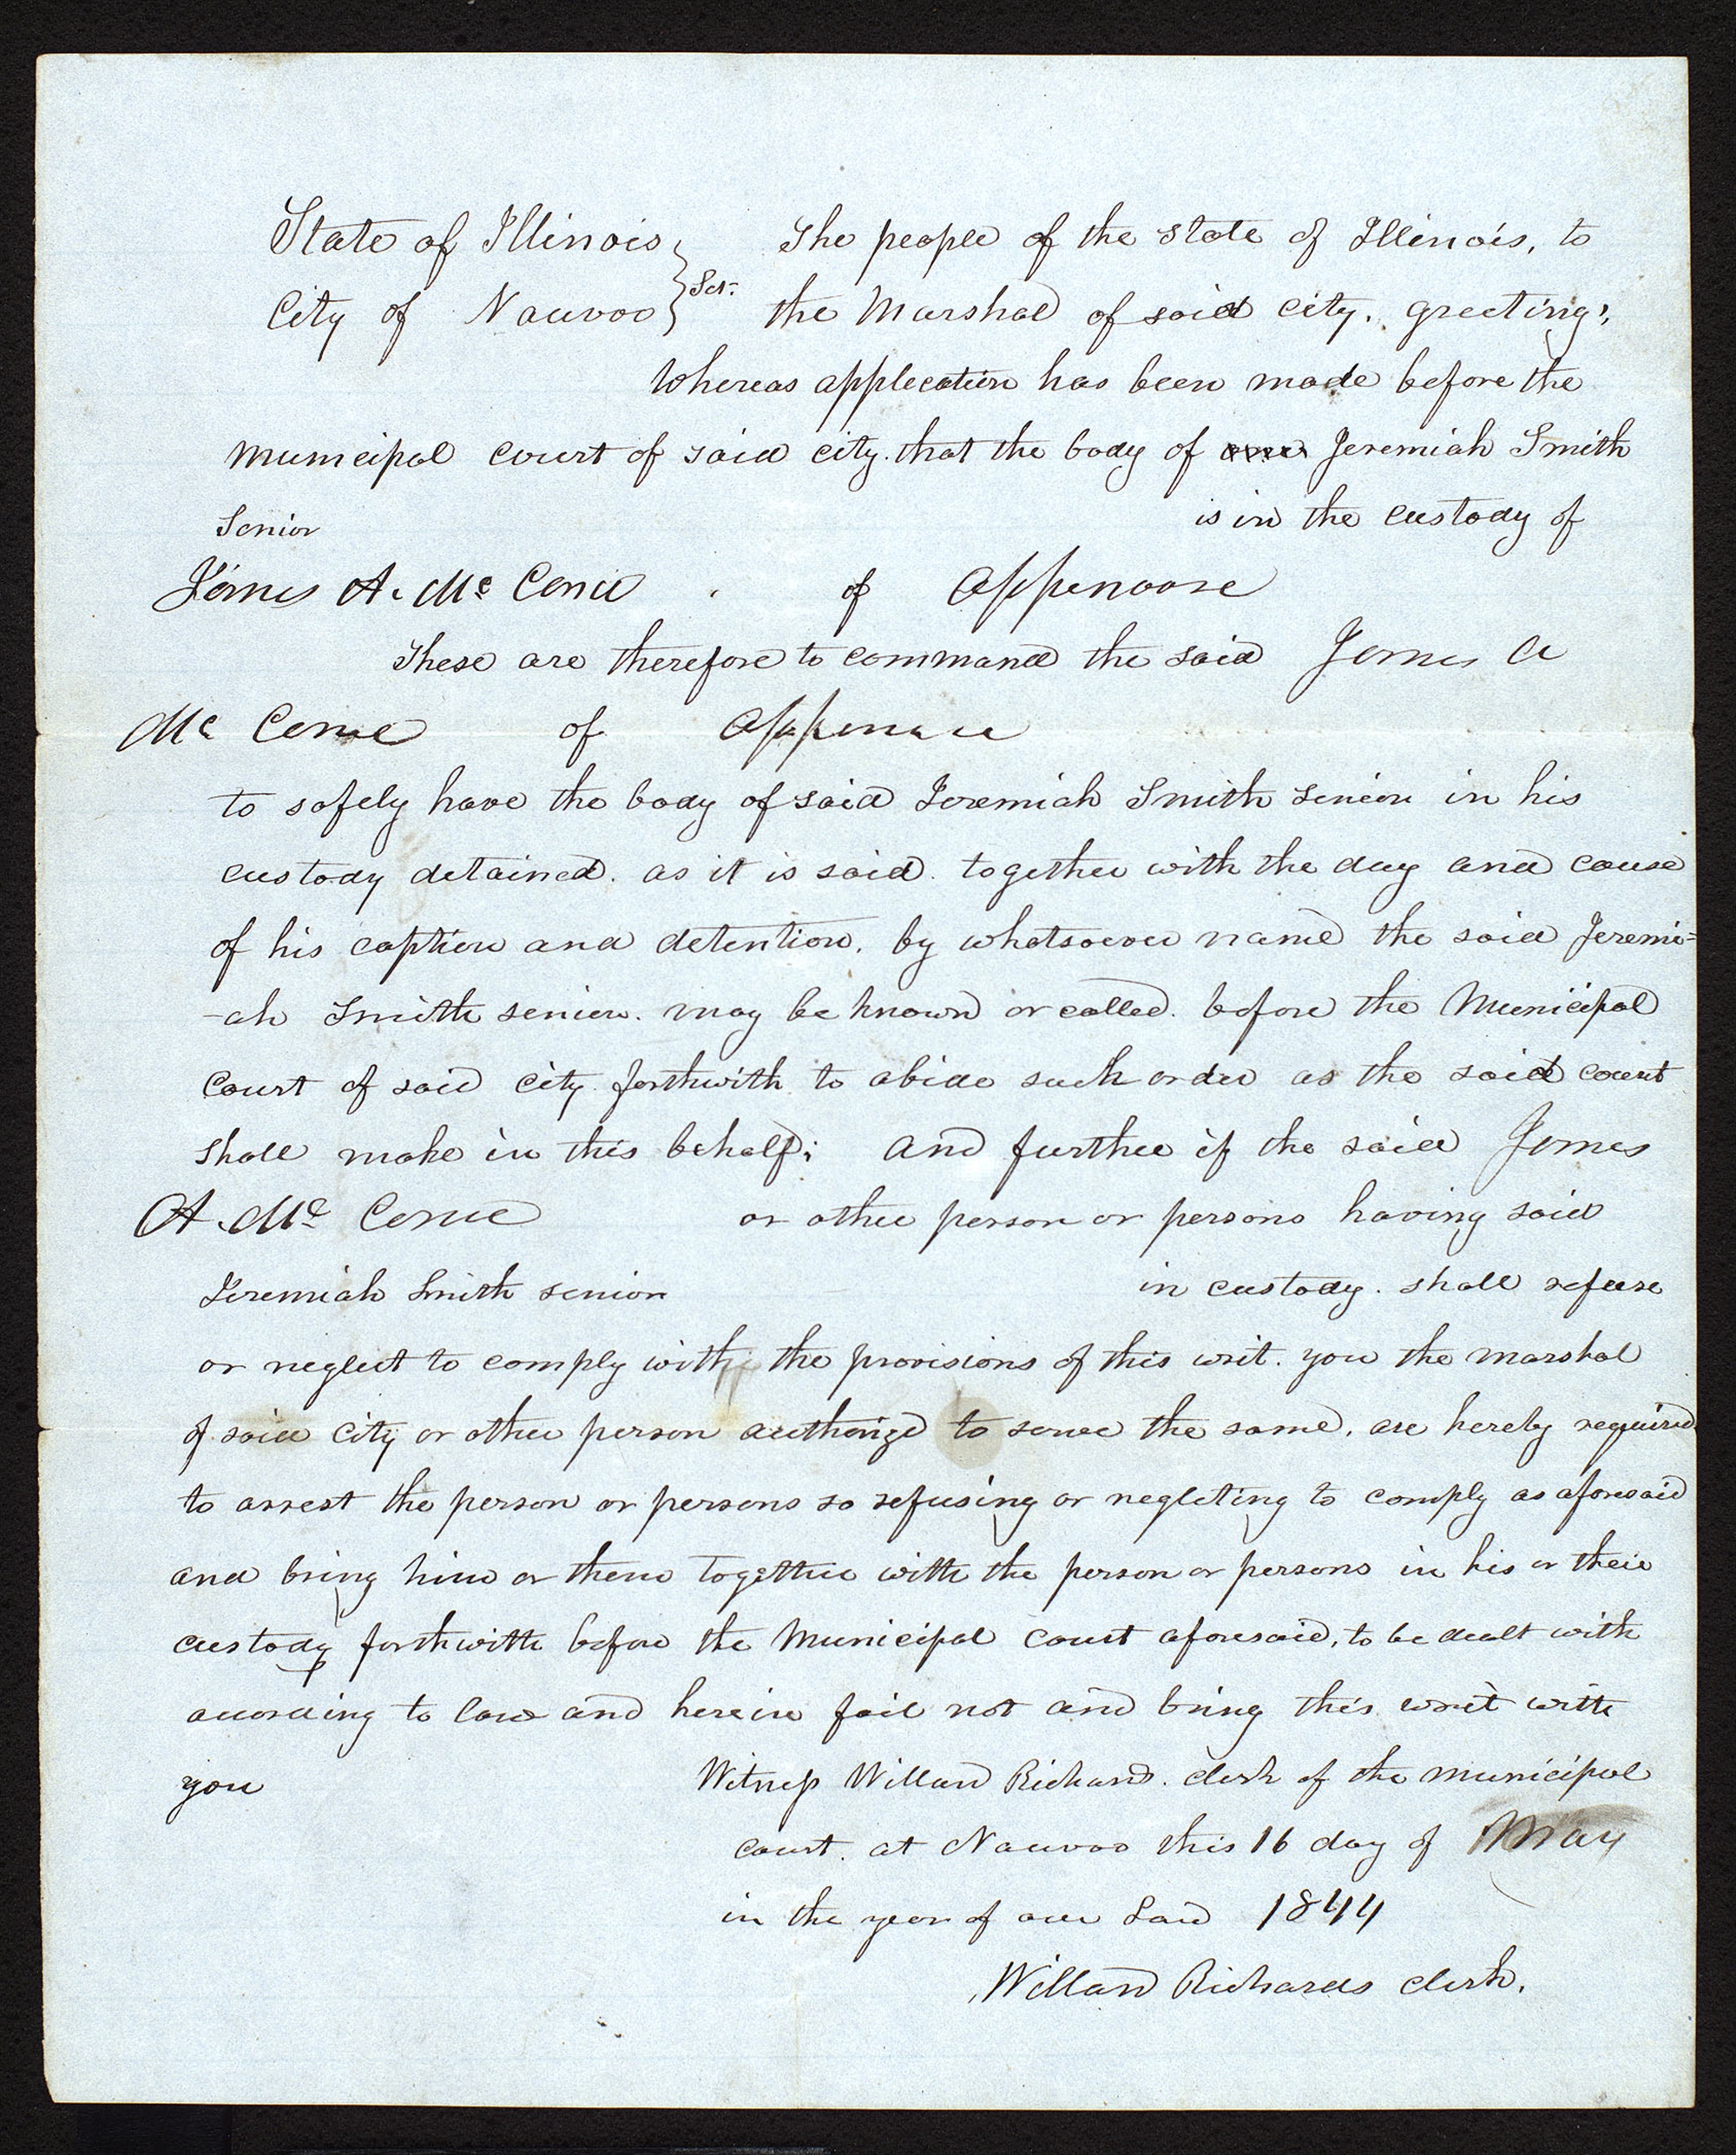 State of Illinois } The people of the state of Illinois, to
City of Nauvoo } Sct. the Marshal of said city, greeting,
Whereas application has been made before the
Municipal court of said city. that the body of one Jeremiah Smith
Senior is in the custody of
James A. Mc Cane of Appenoose
These are therefore to command the said James A
Mc Cane of Appenoose
to safely have the body of said Jeremiah Smith senior in his
custody detained. as it is said. together with the day and cause
of his caption and detention, by whatsoever name the said Jeremi=
-ah Smith senior. may be known or called. before the Municipal
Court of said city forthwith to abide such order as the said court
shall make in this behalf; And further if the said James
A. Mc Cane or other person or persons having said
Jeremiah Smith senior in custody. shall refuse
or neglect to comply with the provisions of this writ. you the marshal
of said city or other person authorizd to serve the same, are hereby required
to arrest the person or persons so refusing or negleting to comply as aforesaid
and bring him or them together with the person or persons in his or their
custody forthwith before the Municipal Court aforesaid, to be dealt with
according to law and herein fail not and bring this writ with
you Witness Willard Richards. clerk of the municipal
court. at Nauvoo this 16 day of May
in the year of our Lord 1844
Willard Richards clerk.